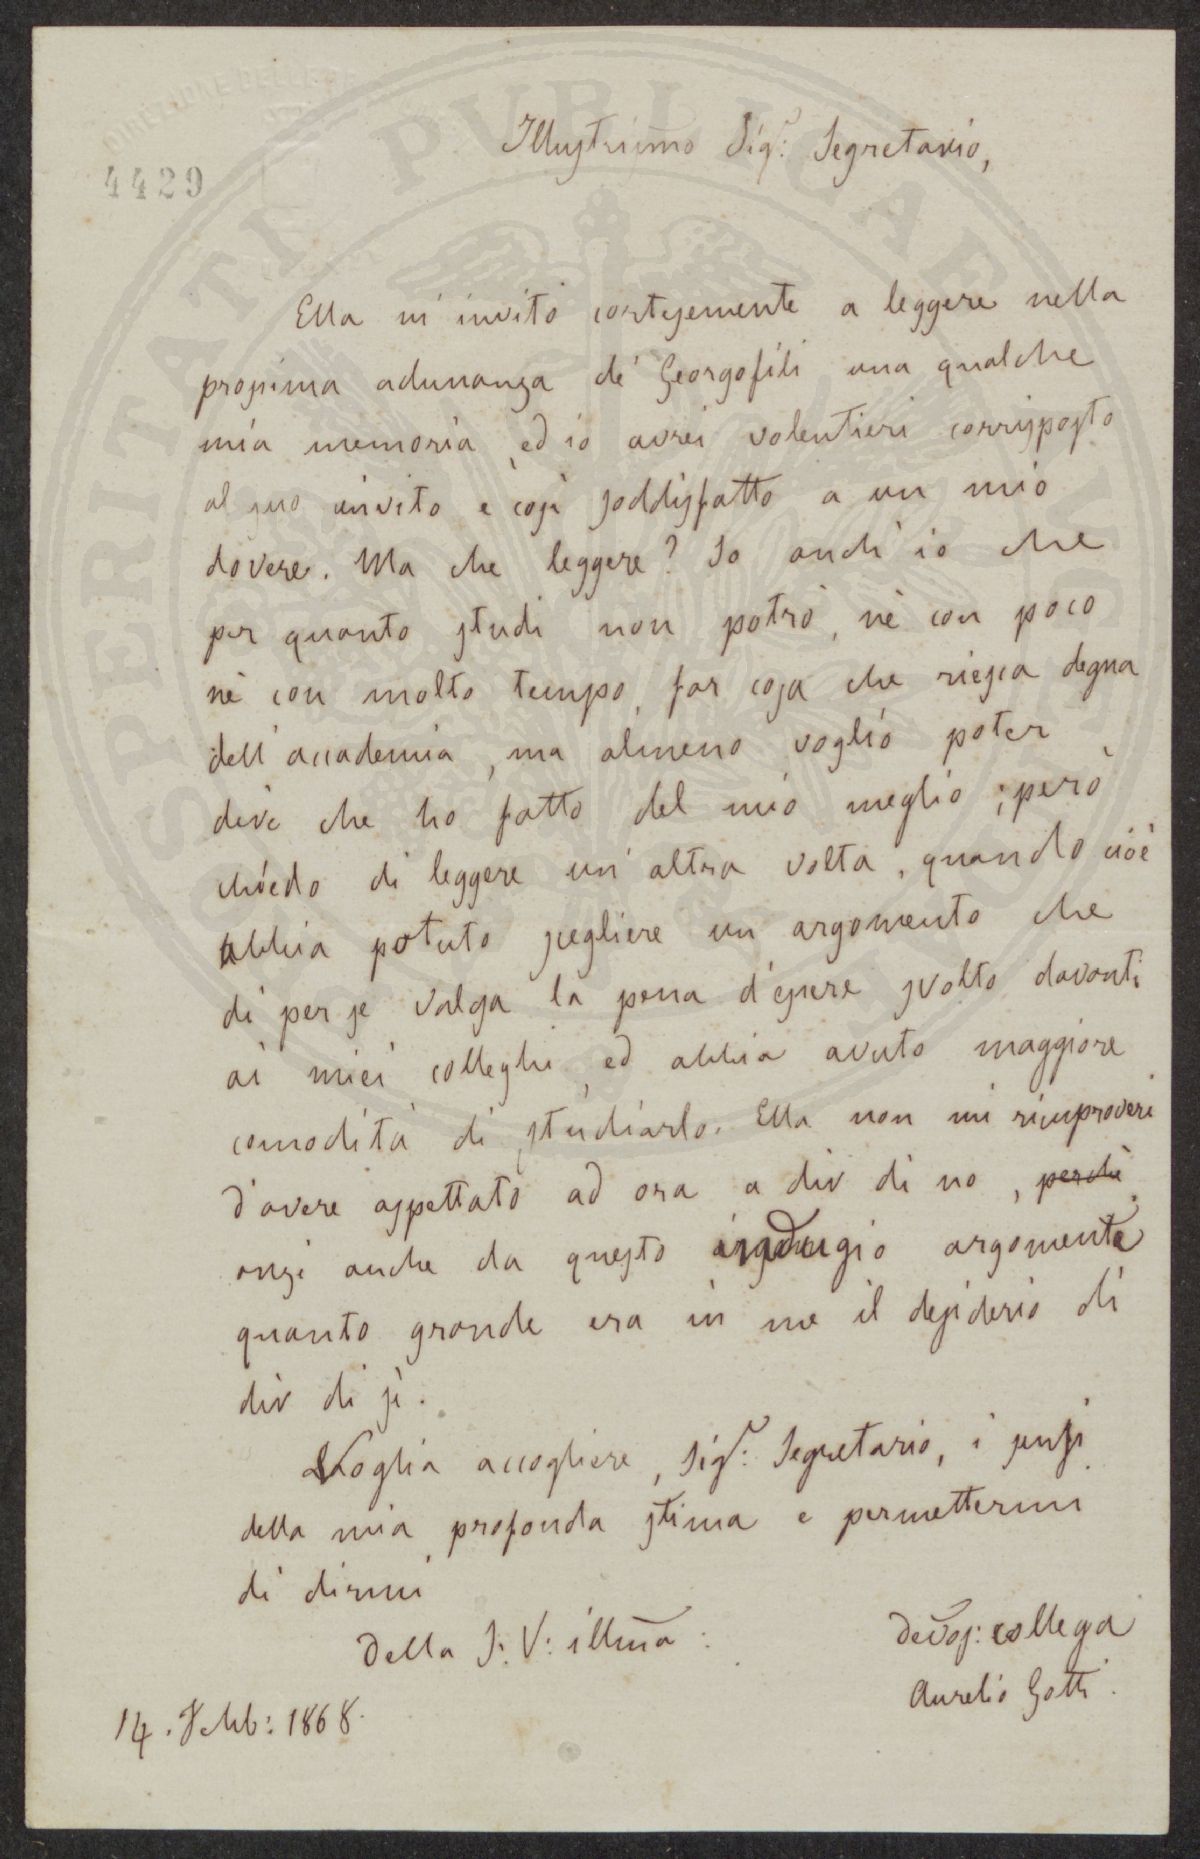 DIREZIONE DELLE
4429
Illustrissimo Sig.r: Segretario,
Ella m'invitò cortesemente a leggere nella
prossima adunanza de' Georgofili una qualche
mia memoria, ed io avrei volentieri corrisposto
al suo invito e così soddisfatto a un mio
dovere. Ma che leggere? So anch'io che
per quanto studi non potrò, nè con poco
nè con molto tempo, far cosa che riesca degna
dell'accademia, ma almeno voglio poter
dire che ho fatto del mio meglio; però
chiedo di leggere un'altra volta, quando cioè
abbia potuto scegliere un argomento che
di per se valga la pena d'essere svolto davanti
ai miei colleghi, ed abbia avuto maggiore
comodità di studiarlo. Ella non mi rimproveri
d'avere aspettato ad ora a dir di no, perchè
anzi anche da questo indugio argomenta
quanto grande era in me il desiderio di
dir di sì.
Voglia accogliere, Sig.r: Segretario, i sensi
della mia profonda stima e permettermi
di dirmi
Della S: V: illma:
devos: collega
Aurelio Gotti.
14. Febb: 1868.
PROSPERITATI PUBLICAE